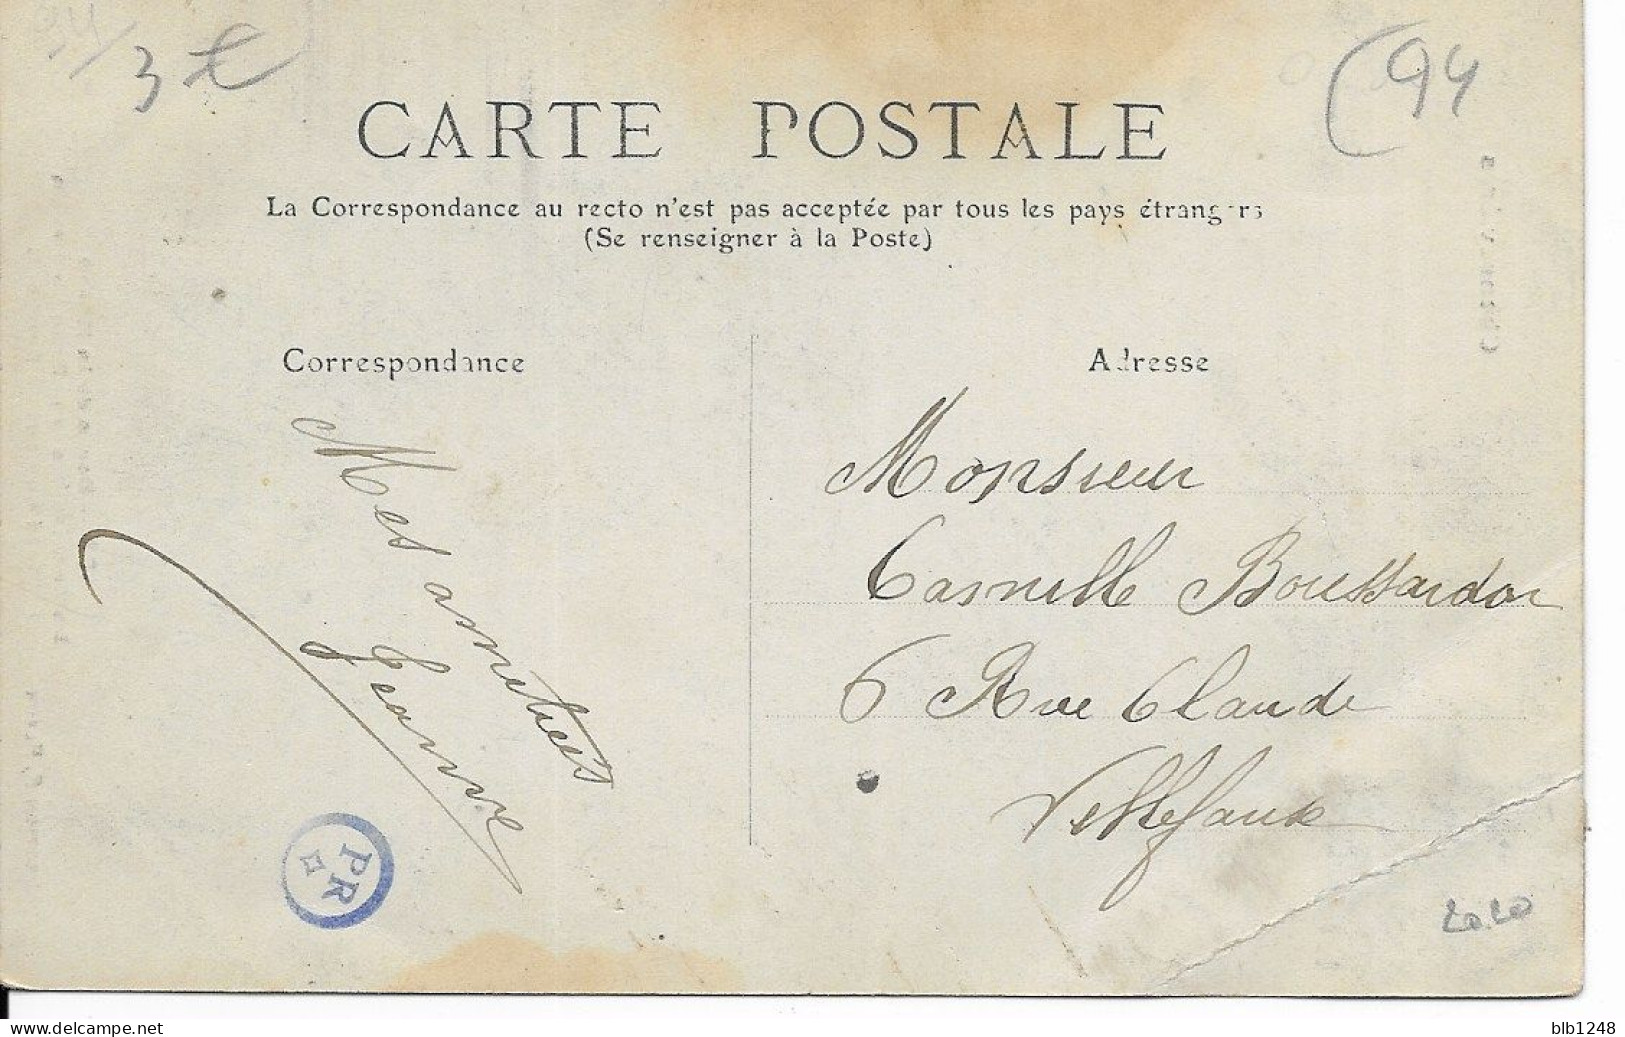 94/
3€
(94
CARTE POSTALE
La Correspondance au recto n'est pas acceptée par tous les pays étrangers
(Se renseigner à la Poste)
Correspondance
Adresse
Mes amitiés
Jeanne
Monsieur
Camille Boussardon
6 Rue Claude
Vellefaux
PR
20.20
blb1248